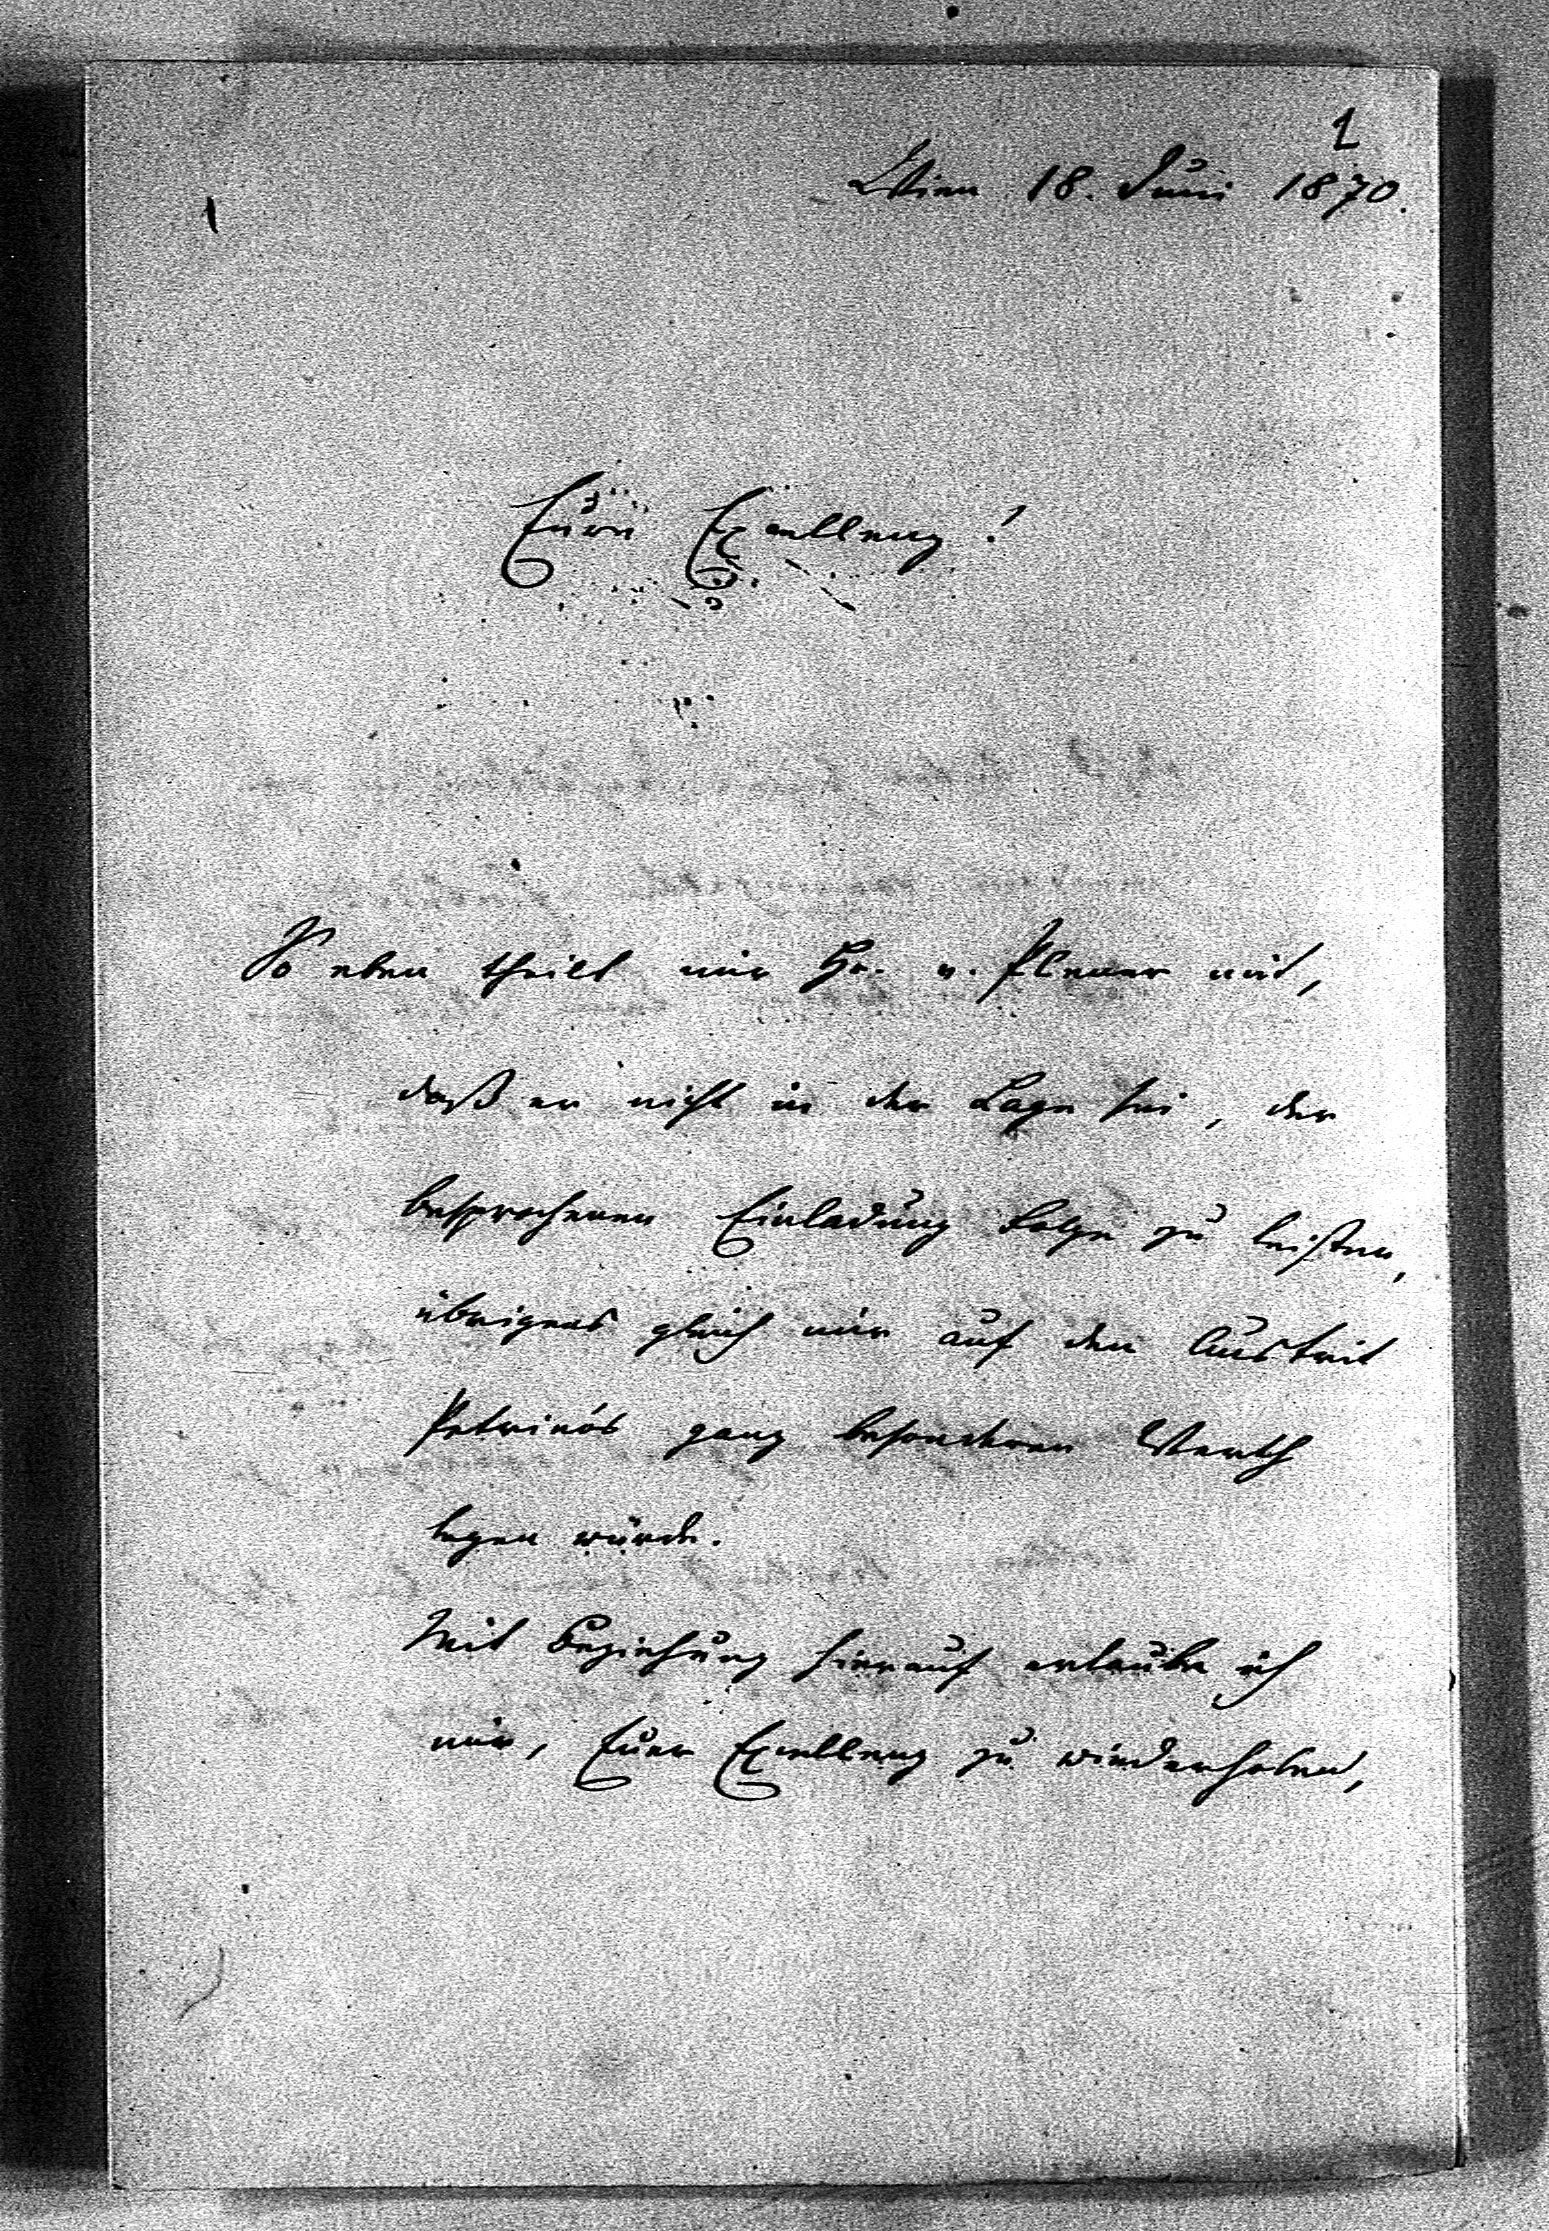 1
Wien 18. Juni 1870.
Eure Excellenz!
So eben theilt mir Hr. v. Plener mit,
daß er nicht in der Lage sei, der
besprochenen Einladung Folge zu leisten,
übrigens gleich mir auf den Austrit
Petrinós ganz besonderen Werth
legen würde.
Mit Beziehung hierauf erlaube ich
mir, Euer Excellenz zu wiederholen,